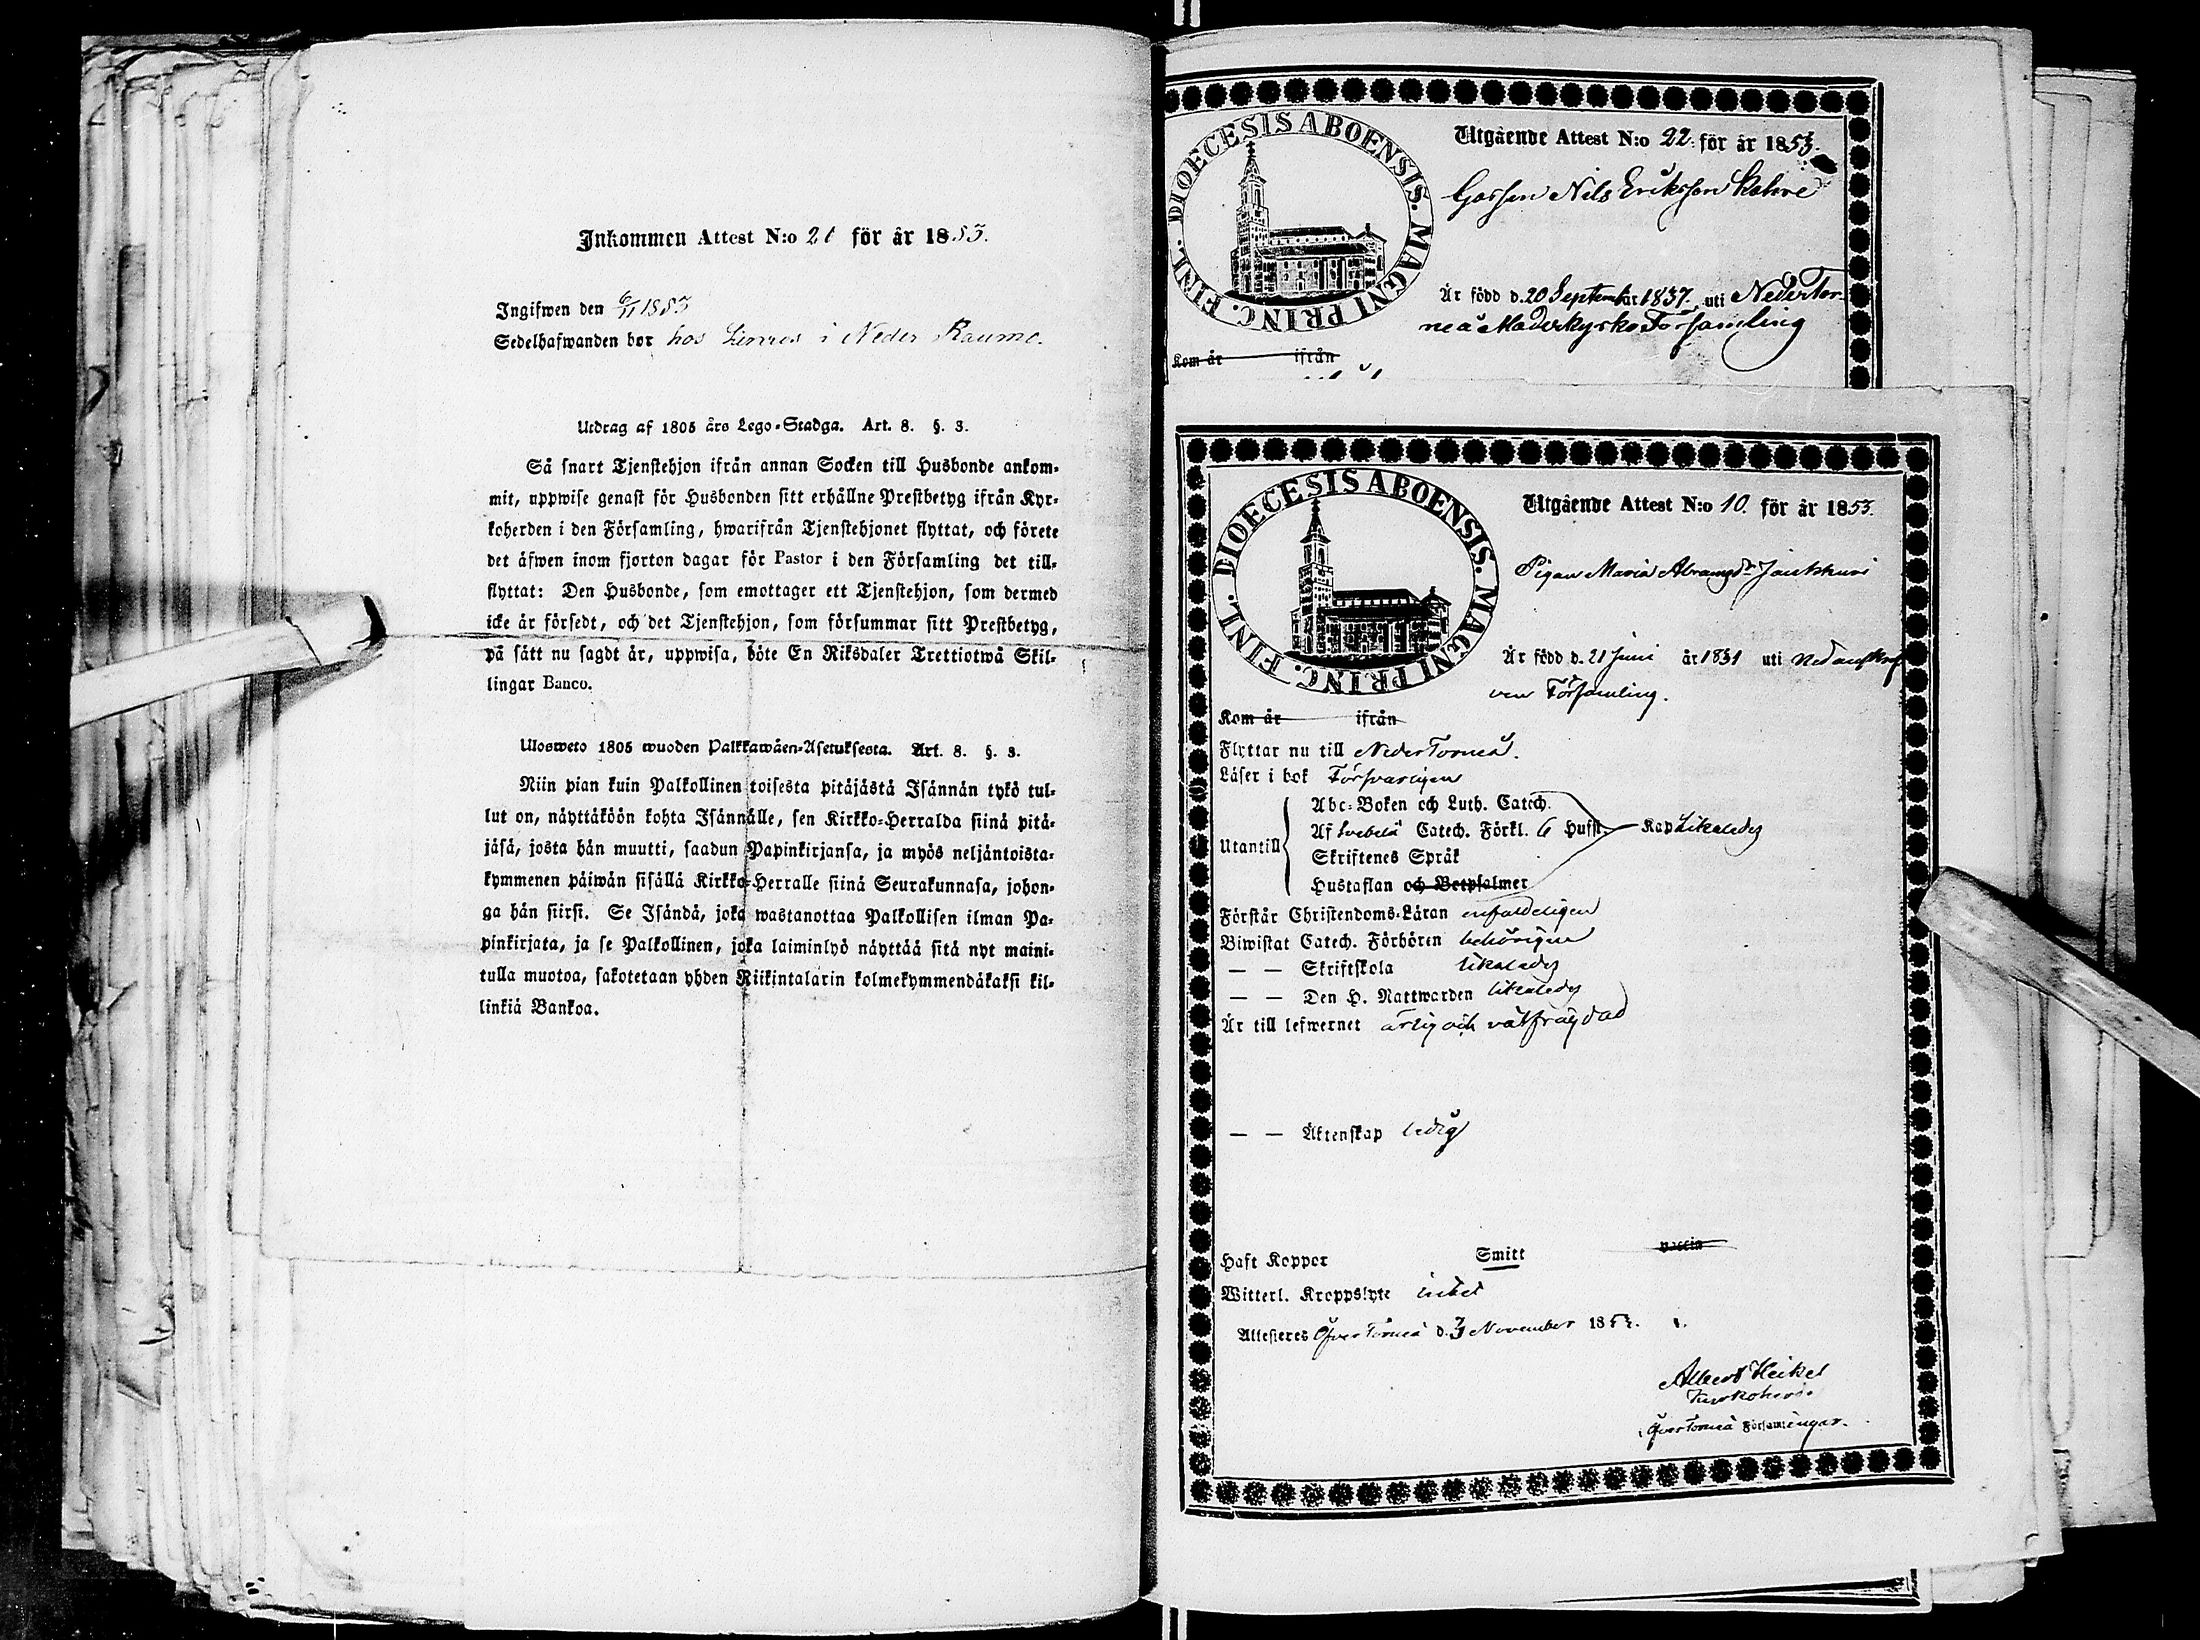 Inkommen Attest N:o 21 för år 1853.
Ingifwen den 6/11 1853
Sedelhafwanden bor hos i Neder Raumo.
Utdrag af 1805 års Lego-Stadga. Art. 8. §. 3.
Så snart Tjenstehjon ifrån annan Socken till Husbonde ankom-
mit, uppwise genast för Husbonden sitt erhållne Prestbetyg ifrån Kyr-
koherden i den Församling, hwarifrån Tjenstehjonet flyttat, och förete
det äfwen inom fjorton dagar för Pastor i den Församling det till-
flyttat: Den Husbonde, som emottager ett Tjenstehjon, som dermed
icke är försedt, och det Tjenstehjon, som försummar sitt Prestbetyg,
på sätt nu sagdt är, uppwisa, böte En Riksdaler Trettiotwå Skil-
lingar Banco.
Ulosweto 1805 wuoden Palkkawäen-Asetuksesta. Art. 8. §. 3.
Niin pian kuin Palkollinen toisesta pitäjästä Isännän tykö tul-
lut on, näyttäköön kohta Isännälle, sen Kirkko-Herralda siinä pitä-
jäsä, josta hän muutti, saadun Papinkirjansa, ja myös neljäntoista-
kymmenen päiwän sisällä Kirkko-Herralle siinä Seurakunnasa, johon-
ga hän siirsi. Se Isändä, joka wastanottaa Palkollisen ilman Pa-
pinkirjata, ja se Palkollinen, joka laiminlyö näyttää sitä nyt maini-
tulla muotoa, sakotetaan yhden Riikintalarin kolmekymmendäkaksi kil-
linkiä Bankoa.
DIOECESIS ABOENSIS. MAGNI PRINC. FINL.
Utgående Attest N:o 22 för år 1853.
Gossen Nils Eriksson
Är född d. 20 September år 1837. uti NederTor-
neå Moderkyrko Församling
Kom år ifrån
DIOECESIS ABOENSIS. MAGNI PRINC. FINL.
Utgående Attest N:o 10. för år 1853.
Pigan Maria Abramsdr
Är född d. 21 Juni år 1831 uti nedanskref-
ven Församling.
Kom år ifrån
Flyttar nu till NederTorneå.
Läser i bok Försvarligen
Utantill
Abc-Boken och Luth. Catech.
Af Svebelii Catech. Förkl. 6 Hufst. Kap likaledes
Skriftenes Språk
Hustaflan och Betpsalmer
Förstår Christendoms-Läran enfaldeligen
Biwistat Catech. Förhören behörigen
— — Skriftskola likaledes
— — Den H. Nattwarden likaledes
Är till lefwernet ärlig och välfräjdad
— — Äktenskap ledig
Haft Koppor Smitt vaccin
Witterl. Kroppslyte intet
Attesteres ÖfverTorneå d. 3 November 1853.
Albert Heikel
Kyrkoherde
i ÖfverTorneå Församlingar.